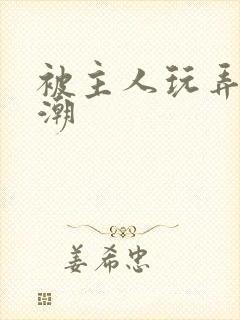 被主人玩弄
潮
姜希忠